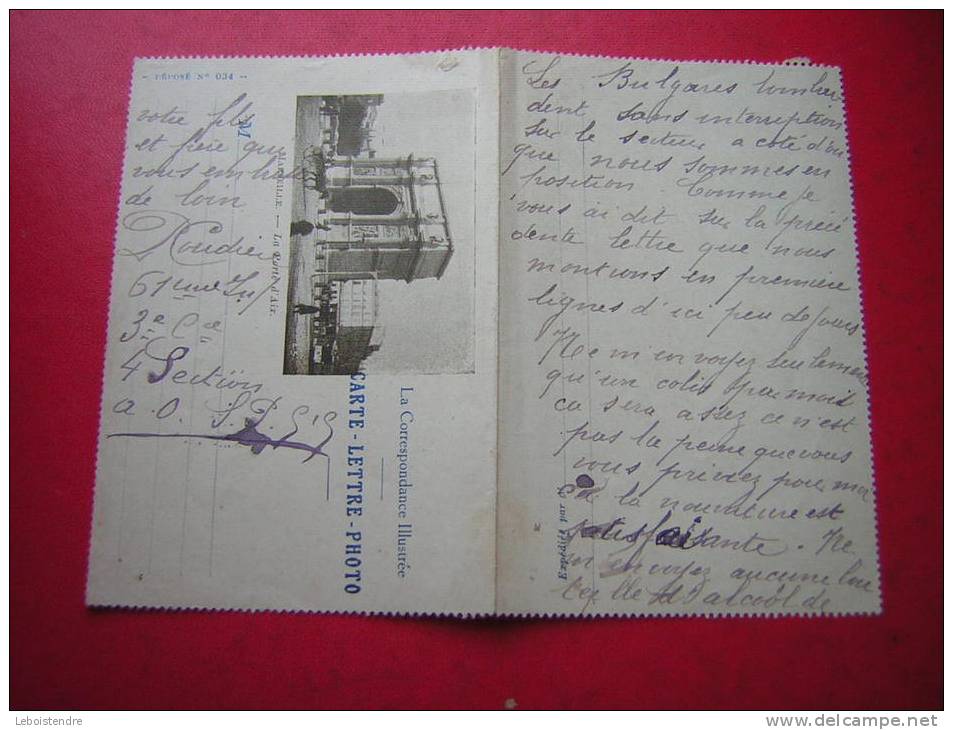 - DÉPOSÉ Nº 034 -
votre fils
et frère qui
vous embrasse
de loin
61eme
3e Cie
4 Section
a. O. S. P. 515
M
MARSEILLE. — La Porte d'Aix.
La Correspondance Illustrée
CARTE-LETTRE-PHOTO
Les Bulgares bombar
dent sans interruption
sur le secteur a coté d'ou
que nous sommes en
position. Comme je
vous ai dit sur la précé
dente lettre que nous
montions en première
lignes d'ici peu de jours
Ne m'envoyez seulement
qu'un colis par mois
ca sera assez ce n'est
pas la peine que vous
vous priviez pour moi
la nourriture est
satisfaisante. Ne
m'envoyez aucune bou
teille d'alcool de
Expédiée par
Leboistendre
www.delcampe.net